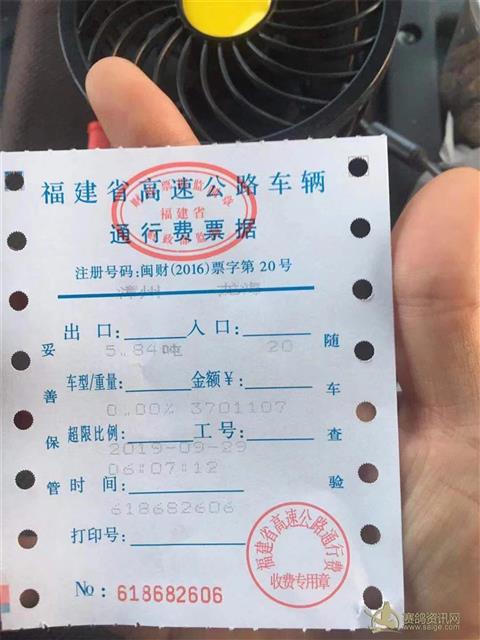 福建省高速公路车辆
福建省
通行费票据
注册号码:闽财(2016)票字第20号
漳州
出口: 入口:
5..84吨 20
车型/重量: 金额¥:
0.00% 3701107
超限比例: 工号:
2019-09-29
06:07:12
时间:
618682606
打印号:
No: 618682606
妥善保管
随车查验
福建省高速公路通行费
收费专用章
赛鸽资讯网
www.saige.com